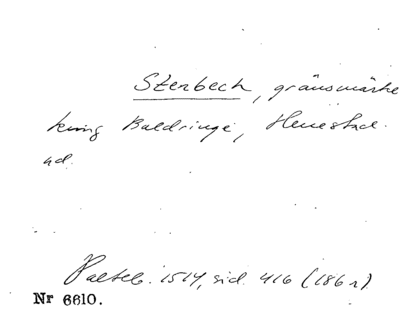 Stenbech, gränsmärke
kring Baldringe, Henestad.
ad.
Palteb. 1514, sid. 416 (186 r)
Nr 6610.